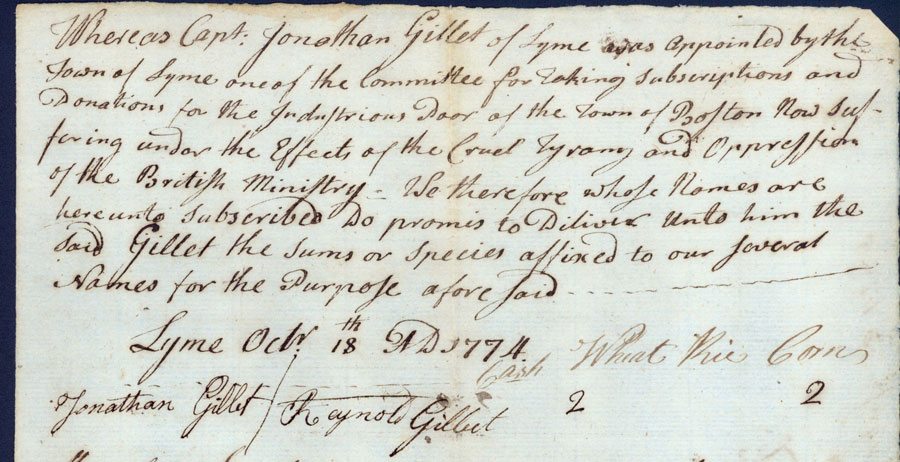 Whereas Capt: Jonathan Gillet of Lyme was appointed by the
Town of Lyme one of the Committee for taking Subscriptions and
Donations for the Industrious Poor of the Town of Boston Now Suf-
fering under the Effects of the Cruel Tyrany and Oppression
of the British Ministry - We therefore whose Names are
hereunto Subscribed Do promis to Diliver Unto him the
said Gillet the Sums or Species affixed to our several
Names for the Purpose afore said
Lyme Octr 18th AD 1774. Cash Wheat Rie Corn
Jonathan Gillet Reynold Gillet 2 2